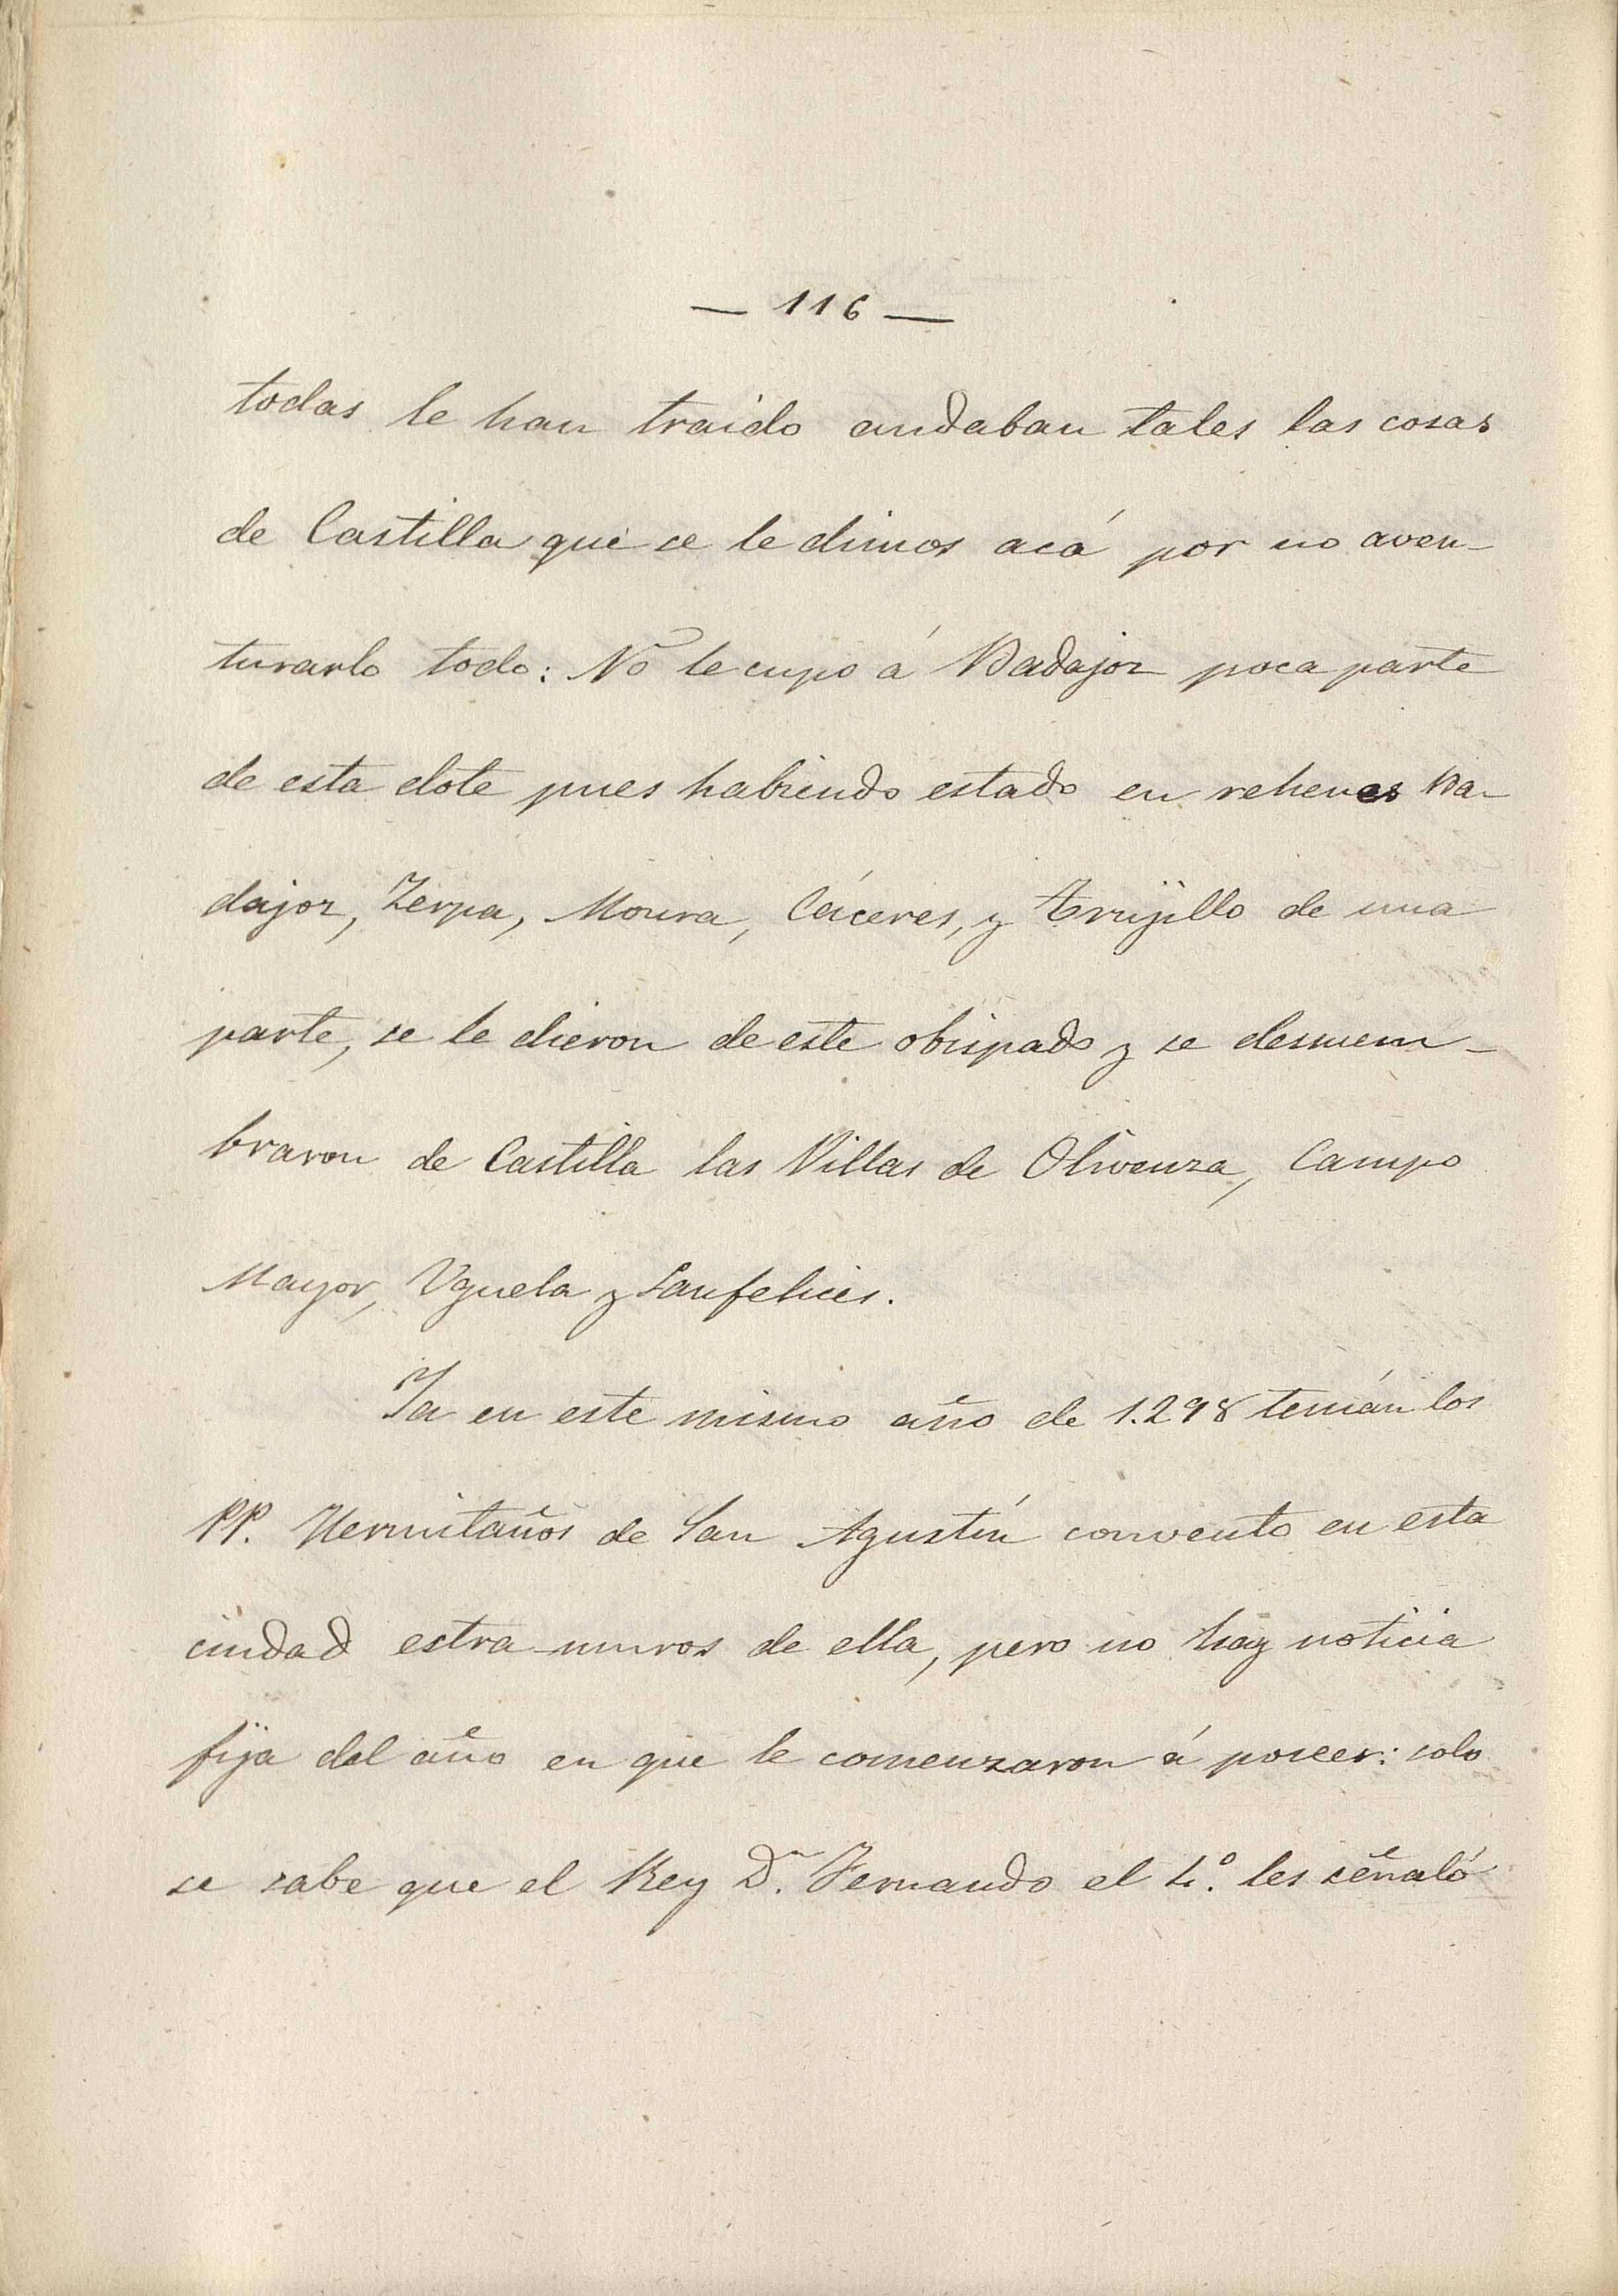 — 116 —
todas le han traido andaban tales las cosas
de Castilla que se le dimos acá por no aven-
turarlo todo: No le cupo á Badajoz poca parte
de esta dote pues habiendo estado en rehenes Ba-
dajoz, Zerpa, Moura, Cáceres, y Trujillo de una
parte, se le dieron de este obispado y se desmem-
braron de Castilla las Villas de Olivenza, Campo
Mayor, Uguela y Sanfelices.
Ya en este mismo año de 1.298 tenían los
PP. Hermitaños de San Agustín convento en esta
ciudad estra-muros de ella, pero no hay noticia
fija del año en que le comenzaron á poseer: solo
se sabe que el Rey Dn. Fernando el 4.º les señaló